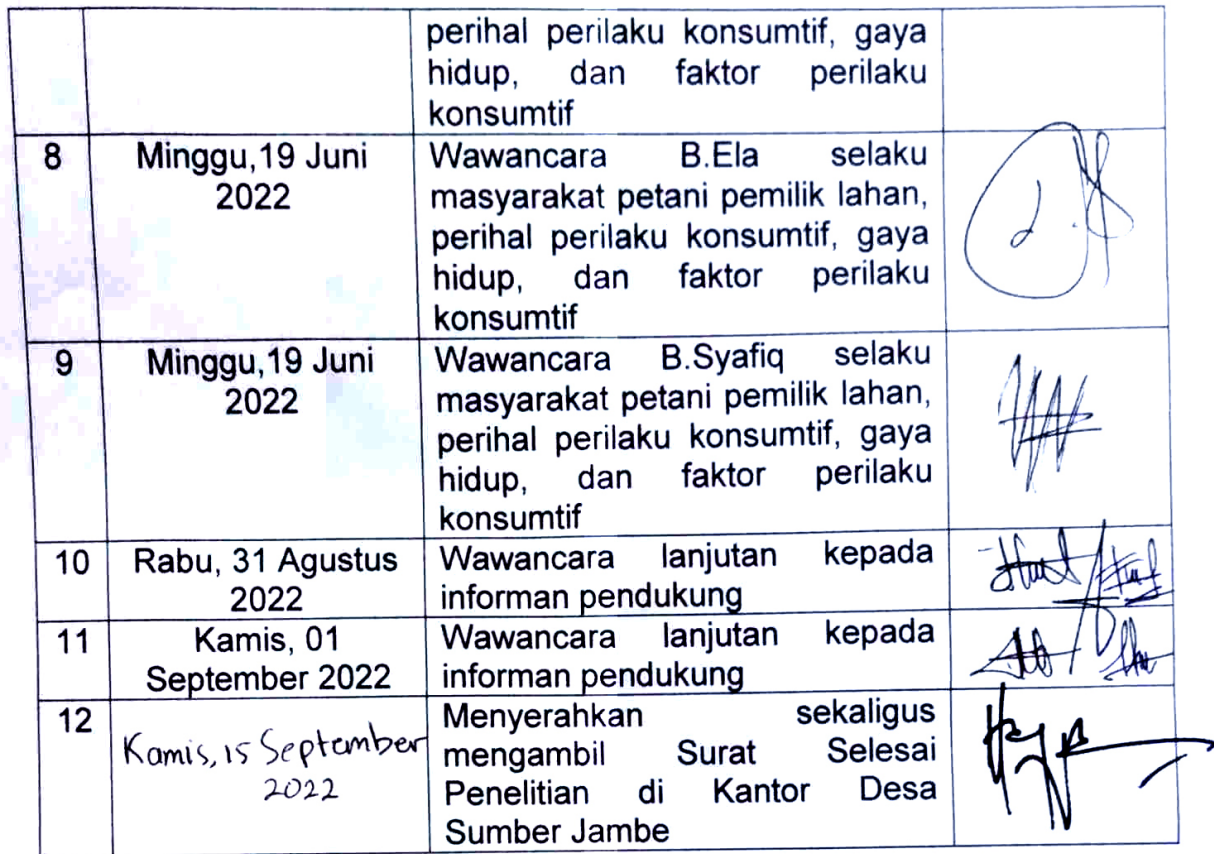 perihal perilaku konsumtif, gaya
hidup, dan faktor perilaku
konsumtif
8
Minggu,19 Juni
2022
Wawancara B.Ela selaku
masyarakat petani pemilik lahan,
perihal perilaku konsumtif, gaya
hidup, dan faktor perilaku
konsumtif
9
Minggu,19 Juni
2022
Wawancara B.Syafiq selaku
masyarakat petani pemilik lahan,
perihal perilaku konsumtif, gaya
hidup, dan faktor perilaku
konsumtif
10
Rabu, 31 Agustus
2022
Wawancara lanjutan kepada
informan pendukung
11
Kamis, 01
September 2022
Wawancara lanjutan kepada
informan pendukung
12
Kamis, 15 September
2022
Menyerahkan sekaligus
mengambil Surat Selesai
Penelitian di Kantor Desa
Sumber Jambe